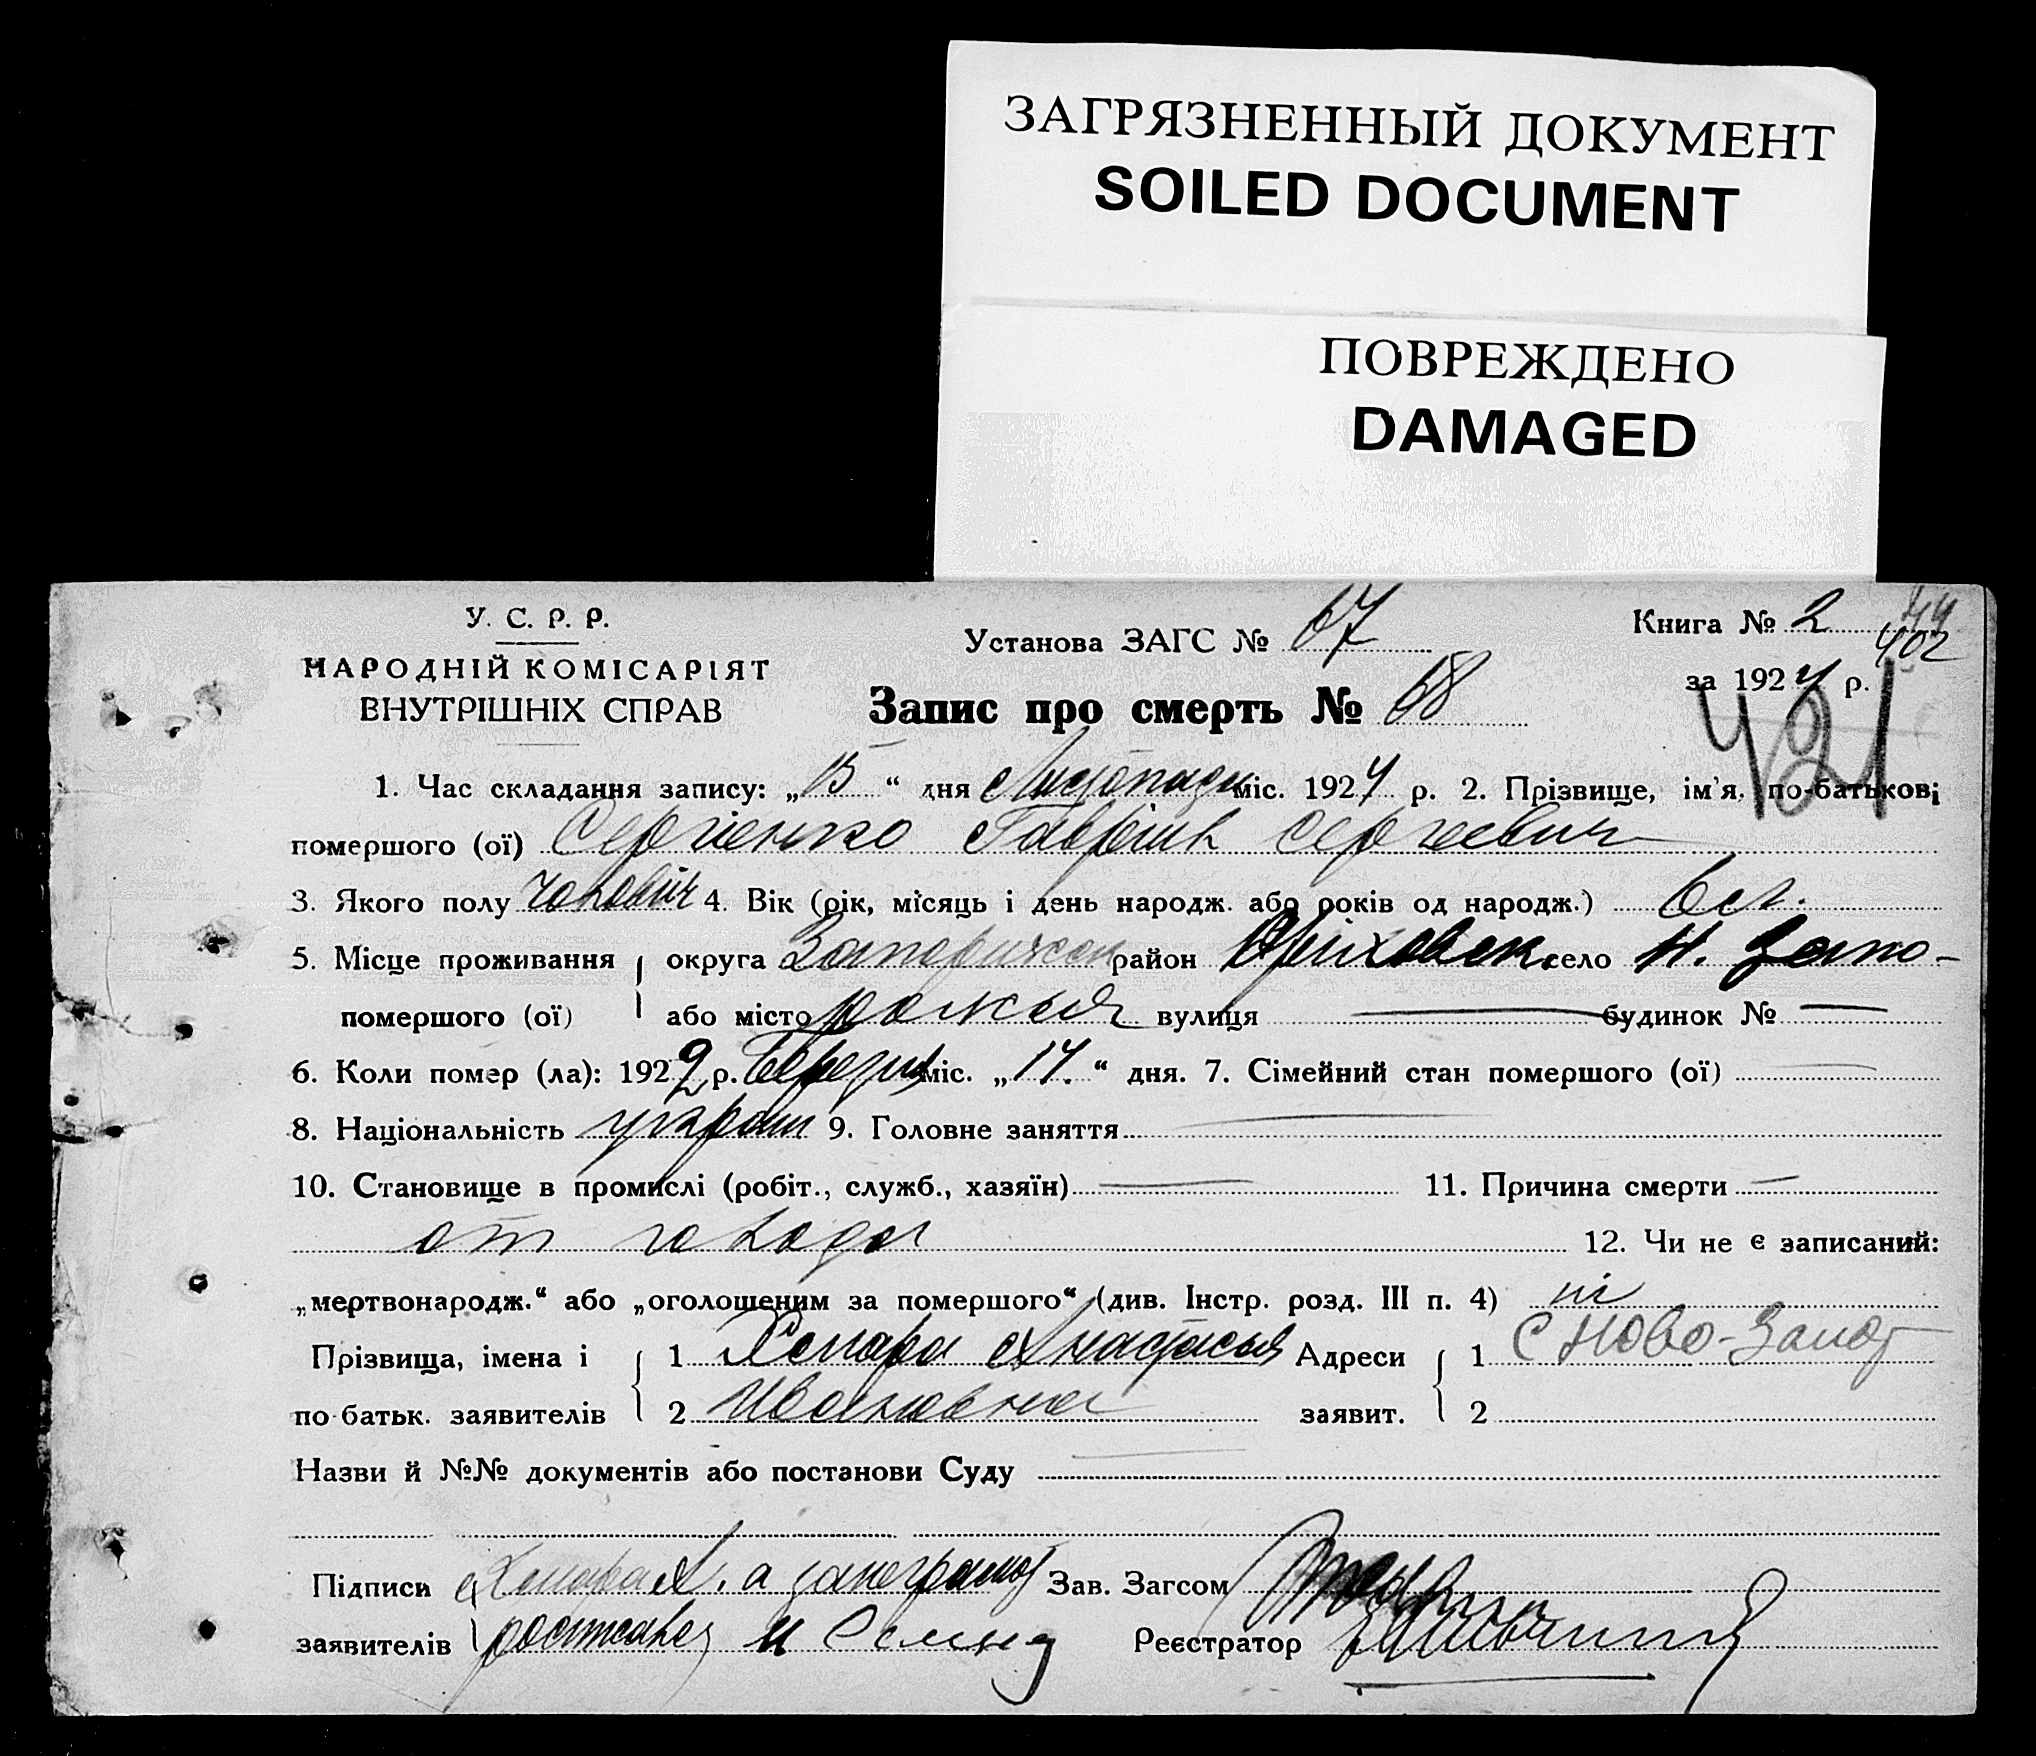 ЗАГРЯЗНЕННЫЙ ДОКУМЕНТ
SOILED DOCUMENT
ПОВРЕЖДЕНО
DAMAGED
У. С. Р. Р.
НАРОДНІЙ КОМІСАРІЯТ
ВНУТРІШНІХ СПРАВ
Установа ЗАГС № 67
Книга № 2
44
402
за 1924 р.
421
Запис про смерть № 68
1. Час складання запису: „15“ дня Листопада міс. 1924 р. 2. Прізвище, ім'я, по-батькові
помершого (ої) Сергієнко Гавріил Сергеевич
3. Якого полу чоловіч 4. Вік (рік, місяць і день народж. або років од народж.) 6 ст.
5. Місце проживання помершого (ої) { округа Запорижск район Оріховск село Н. Запо-
або місто рожья вулиця — будинок № —
6. Коли помер (ла): 1922 р. Березня міс. „14“ дня. 7. Сімейний стан помершого (ої) —
8. Національність украин 9. Головне заняття —
10. Становище в промислі (робіт., служб., хазяїн) — 11. Причина смерти —
от голода 12. Чи не є записаний:
„мертвонародж.“ або „оголошеним за помершого“ (див. Інстр. розд. III п. 4) ні
Прізвища, імена і по-батьк. заявителів { 1 Хмара Анастасія Адреси заявит. { 1 С Ново-Запор
2 Ивановна 2
Назви й №№ документів або постанови Суду —
Підписи заявителів { Хмара А. а за неграмот Зав. Загсом
и Реєстратор